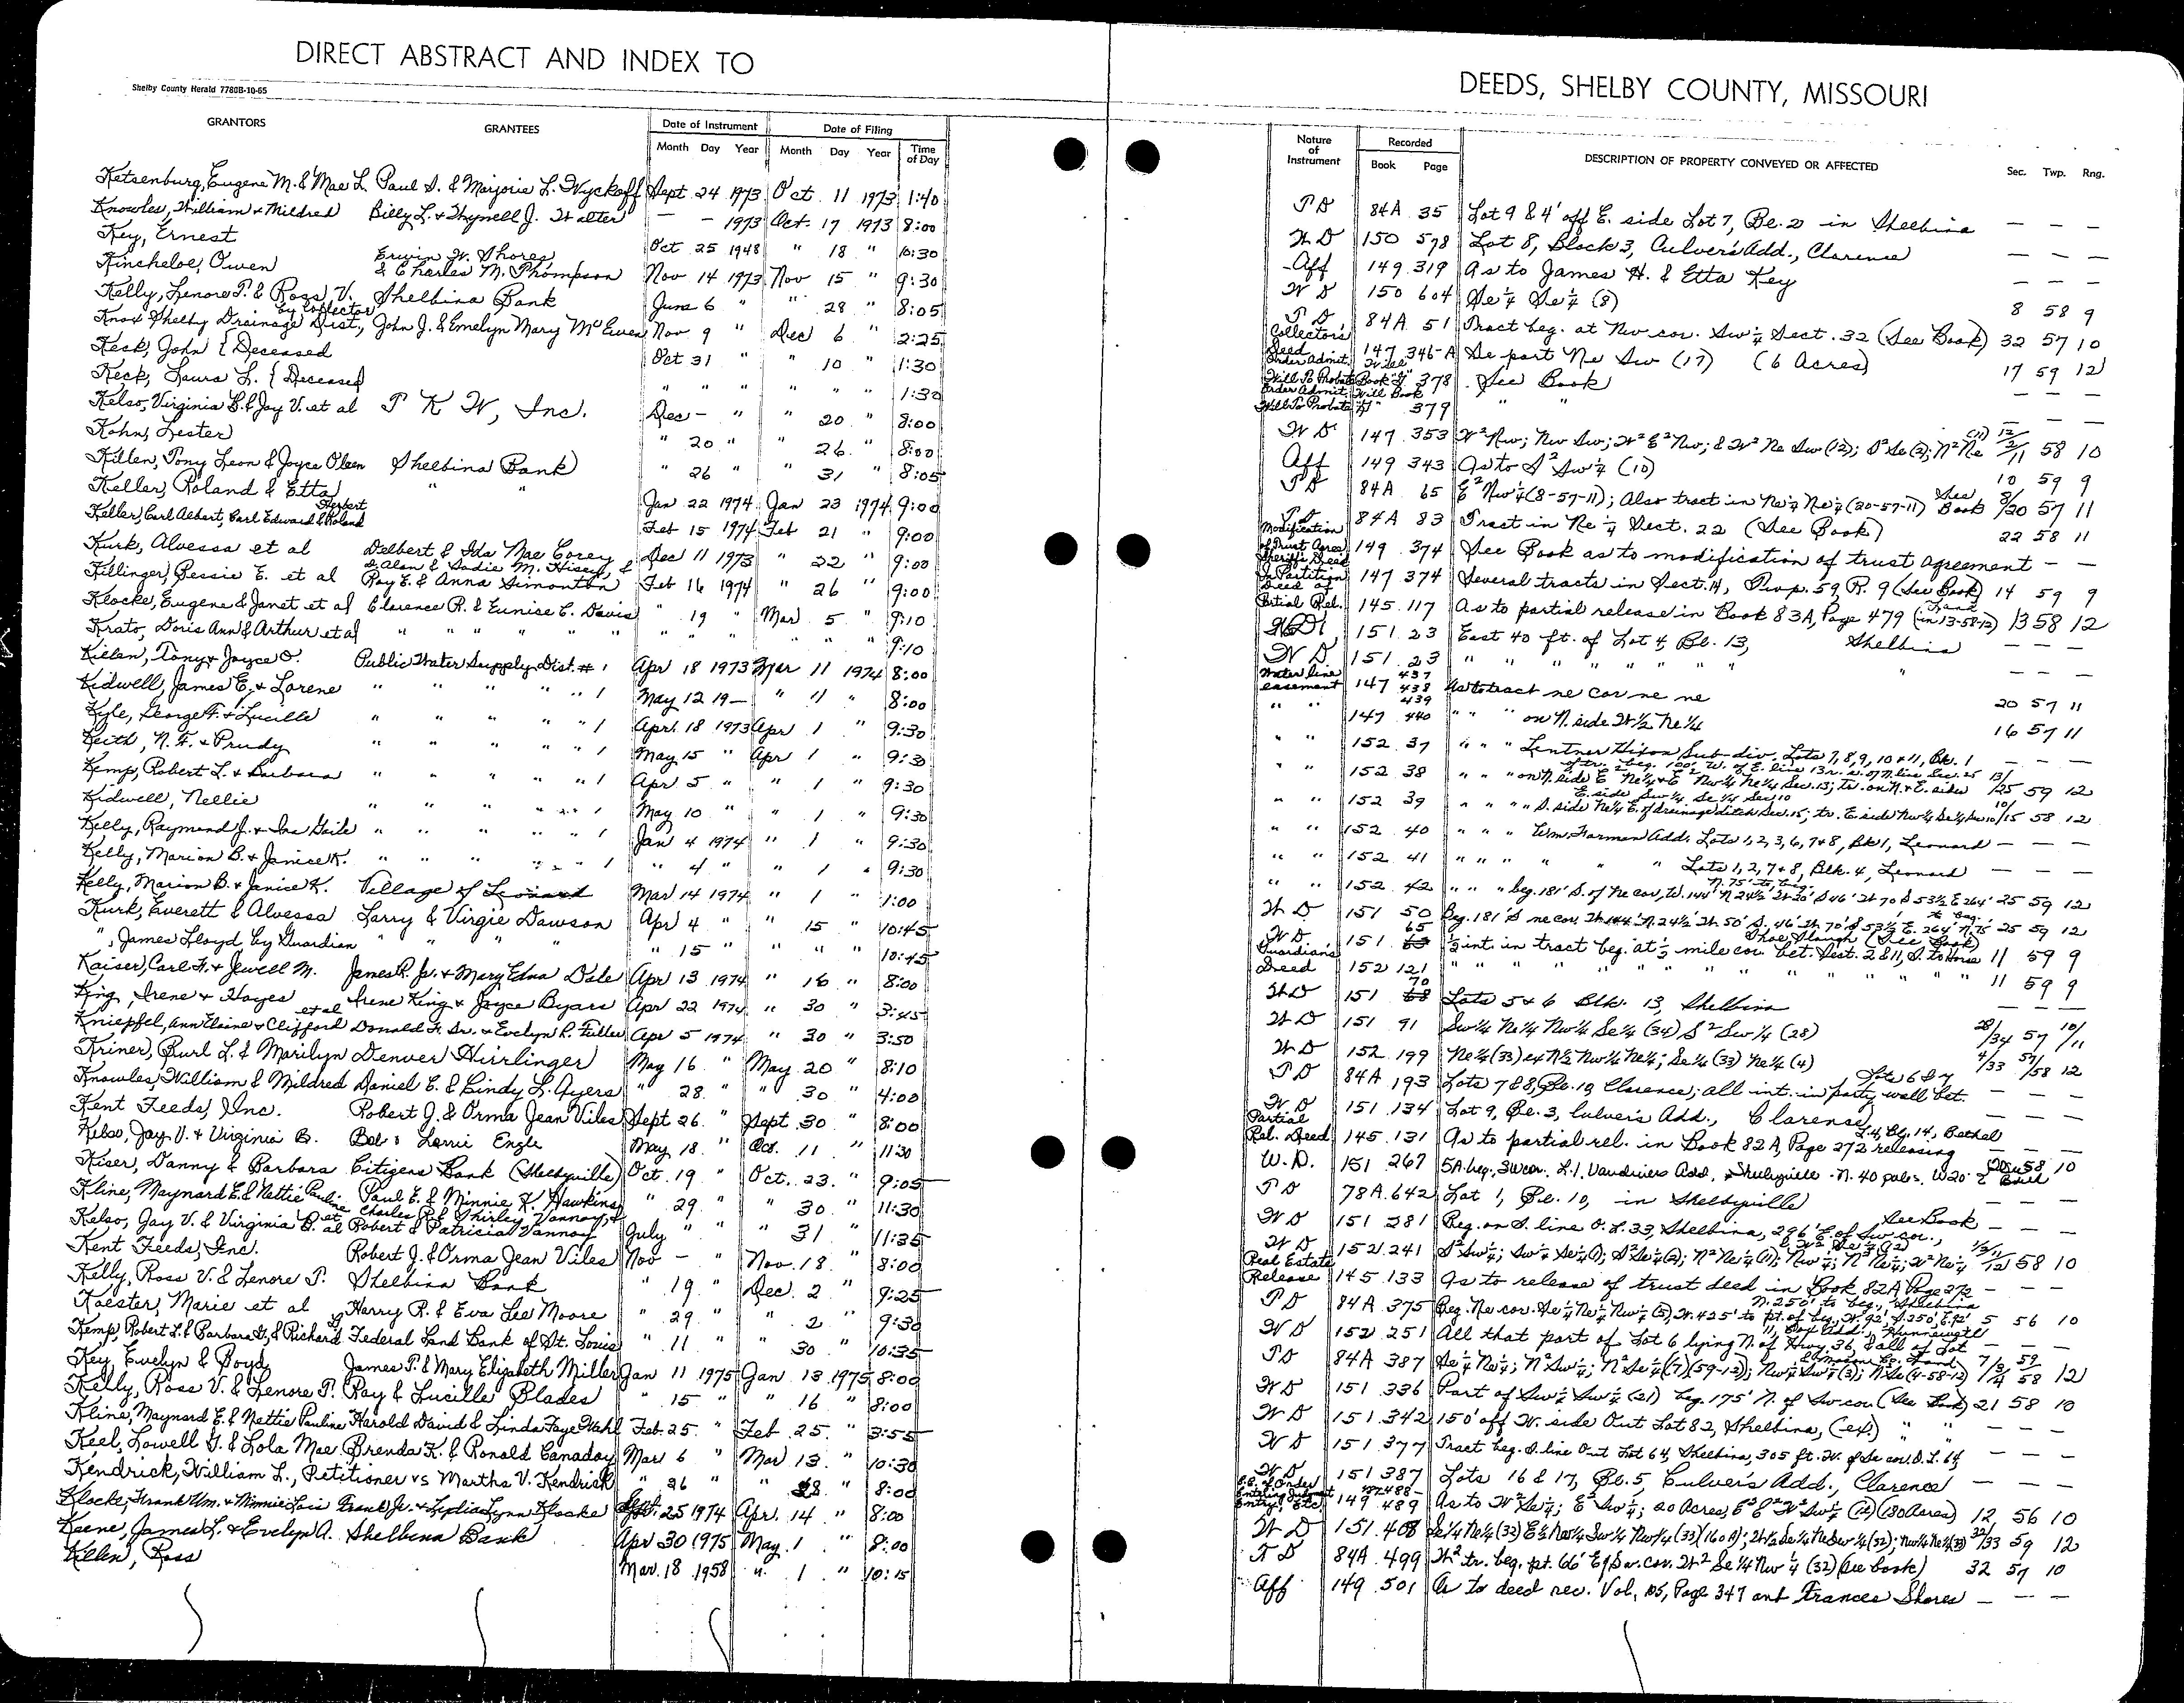 DIRECT ABSTRACT AND INDEX TO
DEEDS, SHELBY COUNTY, MISSOURI
Shelby County Herald 7780B-10-65
GRANTORS GRANTEES Date of Instrument Date of Filing Time of Day
Month Day Year Month Day Year
Nature of Instrument Recorded DESCRIPTION OF PROPERTY CONVEYED OR AFFECTED Sec. Twp. Rng.
Book Page
Ketsenburg, Eugene M. & Mae L. Paul S. & Marjorie L. Wyckoff Sept 24 1973 Oct. 11 1973 1:40
Knowles, William & Mildred Billy L. & Thynell J. Walter — - 1973 Oct. 17 1973 8:00
Key, Ernest Oct 25 1948 " 18 " 10:30
Kincheloe, Owen Erwin W. Shores & Charles M. Thompson Nov 14 1973 Nov 15 " 9:30
Kelly, Lenore T. & Ross V. Shelbina Bank June 6 " " 28 " 8:05
Knox Shelby Drainage Dist., by Collector John J. & Emelyn Mary McEwen Nov 9 " Dec 6 " 2:25
Keck, John { Deceased Oct 31 " " 10 " 1:30
Keck, Laura L. { Deceased " " " " " " 1:30
Kelso, Virginia B. & Jay V. et al T K W, Inc. Dec - " " 20 " 8:00
Kohn, Lester " 20 " " 26 " 8:00
Killen, Tony Leon & Joyce Oleen Shelbina Bank " 26 " " 31 " 8:05
Keller, Roland & Etta " " Jan 22 1974 Jan 23 1974 9:00
Keller, Carl Albert, Carl Edward & Roland Herbert Feb 15 1974 Feb 21 " 9:00
Kurk, Alvessa et al Delbert & Ida Mae Corey Dec 11 1973 " 22 " 9:00
Killinger, Bessie E. et al & Alan & Sadie M. Hisey & Roy E. & Anna Simonton Feb 16 1974 " 26 " 9:00
Klocke, Eugene & Janet et al Clarence R. & Eunice E. Davis " 19 " Mar 5 " 9:10
Krato, Doris Ann & Arthur et al " " " " " " " " " " " 9:10
Killen, Tony & Joyce O. Public Water Supply Dist. # 1 Apr 18 1973 Mar 11 1974 8:00
Kidwell, James E. & Lorene " " " " 1 May 12 19— " 11 " 8:00
Kyle, George F. & Lucille " " " " 1 Apr. 18 1973 Apr 1 " 9:30
Keith, N. F. & Prudy " " " " 1 May 15 " Apr 1 " 9:30
Kemp, Robert L. & Barbara " " " " 1 Apr 5 " " 1 " 9:30
Kidwell, Nellie " " " " 1 May 10 " " 1 " 9:30
Kelly, Raymond J. & Ina Gaile " " " " 1 Jan 4 1974 " 1 " 9:30
Kelly, Marion B. & Janice K. " " " " 1 " 4 " " 1 " 9:30
Kelly, Marion B. & Janice K. Village of Leonard Mar 14 1974 " 1 " 1:00
Kurk, Everett & Alvessa Larry & Virgie Dawson Apr 4 " " 15 " 10:45
" , James Lloyd by Guardian " " " " " 15 " " " " 10:45
Kaiser, Carl F. & Jewell M. James R. Jr. & Mary Edna Dale Apr 13 1974 " 16 " 8:00
King, Irene & Hayes et al Irene King & Joyce Byars Apr 22 1974 " 30 " 3:45
Kniepfel, Ann Elaine & Clifford Donald F. Sr. & Evelyn R. Fuller Apr 5 1974 " 30 " 3:50
Kriner, Burl L. & Marilyn Denver Hirrlinger May 16 " May 20 " 8:10
Knowles, William & Mildred Daniel E. & Cindy L. Ayers " 28 " " 30 " 4:00
Kent Feeds, Inc. Robert J. & Orma Jean Viles Sept 26 " Sept. 30 " 8:00
Kelso, Jay V. & Virginia B. Bob & Lorrie Engle May 18 " Oct. 11 " 11:30
Kiser, Danny & Barbara Citizens Bank (Shelbyville) Oct. 19 " Oct. 23 " 9:05
Kline, Maynard E. & Nettie Pauline Paul E. & Minnie K. Hawkins " 29 " " 30 " 11:30
Kelso, Jay V. & Virginia B. et al Charles R. & Shirley Vannoy, & Robert & Patricia Vannoy July " " " 31 " 11:35
Kent Feeds, Inc. Robert J. & Orma Jean Viles Nov - " Nov. 18 " 8:00
Kelly, Ross V. & Lenore T. Shelbina Bank " 19 " Dec. 2 " 9:25
Koester, Marie et al Harry R. & Eva Lee Moore " 29 " " 2 " 9:30
Kemp, Robert L. & Barbara G. & Richard Federal Land Bank of St. Louis " 11 " " 30 " 10:35
Key, Evelyn & Boyd James T. & Mary Elizabeth Miller Jan 11 1975 Jan 13 1975 8:00
Kelly, Ross V. & Lenore T. Roy & Lucille Blades " 15 " " 16 " 8:00
Kline, Maynard E. & Nettie Pauline Harold David & Linda Faye Wahl Feb. 25 " Feb 25 " 3:55
Keel, Lowell G. & Lola Mae Brenda K. & Ronald Canaday Mar 6 " Mar 13 " 10:30
Kendrick, William L., Petitioner vs Martha V. Kendrick " 26 " " 28 " 8:00
Klocke, Frank Wm. & Minnie Lois Frank Jr. & Lydia Lynn Klocke Sept. 25 1974 Apr. 14 " 8:00
Keene, James L. & Evelyn A. Shelbina Bank Apr 30 1975 May 1 " 8:00
Killen, Ross Mar. 18 1958 " 1 " 10:15
T D 84A 35 Lot 9 & 4' off E. side Lot 7, Bl. 20 in Shelbina — — —
W D 150 578 Lot 8, Block 3, Culver's Add., Clarence — — —
Aff 149 319 As to James H. & Etta Key — — —
W D 150 604 Se ¼ Se ¼ (8) 8 58 9
T D 84A 51 Tract beg. at Nw cor. Sw ¼ Sect. 32 (See Book) 32 57 10
Collector's Deed 147 346-A Se part Ne Sw (17) (6 Acres) 17 59 12
Order Admit. Will To Probate Will Book "G" 378 See Book — — —
Order Admit. Will To Probate Will Book "G" 379 " " — — —
W D 147 353 W² Nw; Nw Sw; W² E² Nw; & W² Ne Sw (12); S² Se (2); N² Ne (11) 12/2/11 58 10
Aff 149 343 As to S² Sw ¼ (10) 10 59 9
T D 84A 65 E² Nw ¼ (8-57-11); Also tract in Ne ¼ Ne ¼ (20-57-11) See Book 8/20 57 11
T D 84A 83 Tract in Ne ¼ Sect. 22 (See Book) 22 58 11
Modification of Trust Agree. 149 374 See Book as to modification of trust agreement — —
Sheriff's Deed In Partition 147 374 Several tracts in Sect. 14, Twp. 59, R. 9 (See Book) 14 59 9
Deed of Partial Rel. 145 117 As to partial release in Book 83A, Page 479 (in 13-58-12) 13 58 12
W D 151 23 East 40 ft. of Lot 4, Bl. 13, Shelbina — — —
W D 151 23 " " " " " " " — — —
Water line easement 147 437 438 439 As to tract ne cor ne ne 20 57 11
" " 147 440 " " " on N. side W ½ Ne ¼ 16 57 11
" " 152 37 " " " Lentner Hixon Sub-div. Lots 7, 8, 9, 10 & 11, Bk. 1 — — —
" " 152 38 " " " on N. side E² Ne ¼ & E² Nw ¼ Ne ¼ Sec. 13; tr. on N. & E. sides 13/25 59 12
" " 152 39 " " " S. side Ne ¼ E. of drainage ditch Sec. 15; tr. E. side Nw ¼ Se ¼ Sec 10 10/15 58 12
" " 152 40 " " " Wm. Farman Add. Lots 1, 2, 3, 6, 7 & 8, Bk 1, Leonard — — —
" " 152 41 " " " " " Lots 1, 2, 7 & 8, Blk. 4, Leonard — — —
" " 152 42 " " " beg. 181' S. of Ne cor, W. 144' N 24½' W 50' S 46' W 70 S 53½ E 264' N. 75' to beg. 25 59 12
W D 151 50 Beg. 181' S ne cor. W 144' N. 24½' W 50' S. 46' W 70' S 53½ E. 264' N 75' to beg. 25 59 12
W D 151 65 ½ int. in tract beg. at ½ mile cor. bet. Sect. 2 & 11, S. to Horse Shoe Slough (See Book) 11 59 9
Guardian's Deed 152 121 " " " " " " " " " " 11 59 9
W D 151 70 Lots 5 & 6 Blk. 13, Shelbina — — —
W D 151 91 Sw ¼ Ne ¼ Nw ¼ Se ¼ (34) S² Sw ¼ (28) 28/34 57 10/11
W D 152 199 Ne ¼ (33) ex N ½ Nw ¼ Ne ¼; Se ¼ (33) Ne ¼ (4) 4/33 57/58 12
T D 84A 193 Lots 7 & 8, Bl. 10, Clarence; all int. in party wall bet. Lots 6 & 7 — — —
W D 151 134 Lot 9, Bl. 3, Culver's Add., Clarence — — —
Partial Rel. Deed 145 131 As to partial rel. in Book 82A, Page 272 releasing L. 4, Bl. 14, Bethel — — —
W. D. 151 267 5A beg. 3 W cor. L. 1 Vandivers Add, Shelbyville - N. 40 poles, W 20 58 10
T D 78A 642 Lot 1, Bl. 10, in Shelbyville — — —
W D 151 281 Beg. on S. line O. L. 33, Shelbina, 296' E. of Sw cor., See Book — — —
W D 152 241 S² Sw ¼; Sw ¼ Se ¼ (1); S² Se ¼ (2); N² Ne ¼ (11); Nw ¼; N² Ne ¼; W² Ne ¼ 58 10
Real Estate Release 145 133 As to release of trust deed in Book 82A Page 272 — — —
T D 84A 375 Beg. Ne cor. Se ¼ Ne ¼ Nw ¼ (5), W. 425' to pt. of beg. W. 92', S. 250', E. 92' N. 250' to beg., Shelbina 5 56 10
W D 152 251 All that part of Lot 6 lying N. of Hwy. 36, & all of Lot — — —
T D 84A 387 Se ¼ Ne ¼; N² Sw ¼; N² Se ¼ (7) (59-12); Nw ¼ Sw ¼ (3); N² Se (4-58-12) 12
W D 151 336 Part of Sw ¼ Sw ¼ (21) beg. 175' N. of Sw cor. (See Book) 21 58 10
W D 151 342 150' off W. side Out Lot 82, Shelbina, (ex.) " " — — —
W D 151 377 Tract beg. S. line Out Lot 64, Shelbina, 305 ft. W. of Se cor. O. L. 64 — — —
W D 151 387 Lots 16 & 17, Bl. 5, Culver's Add., Clarence — — —
149 489 As to W² Se ¼; E² Sw ¼; 20 Acres, E² E² W² Sw ¼ (12) (180 Acres) 12 56 10
W D 151 408 Se ¼ Ne ¼ (32) E ½ Nw ¼ Sw ¼ Nw ¼ (33) (160 A); W ½ Se ¼ Ne Sw ¼ (32); Nw ¼ Ne ¼ (33) 32/33 59 12
T D 84A 499 W² tr. beg. pt. 66' E of Sw. cor. W² Se ¼ Nw ¼ (32) (See book) 32 57 10
Aff 149 501 As to deed rec. Vol. 105, Page 347 and Frances Shores — — —